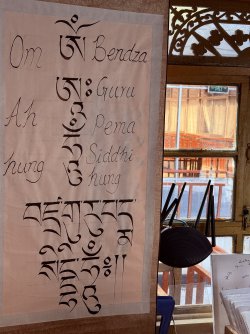 Om ཨོཾ Bendza
Guru
Ah ཨཱཿ Pema
hung ཧཱུྃ Siddhi
hung
བཛྲ་གུ་རུ་པདྨ
སིདྡྷི་ཧཱུྃ༎